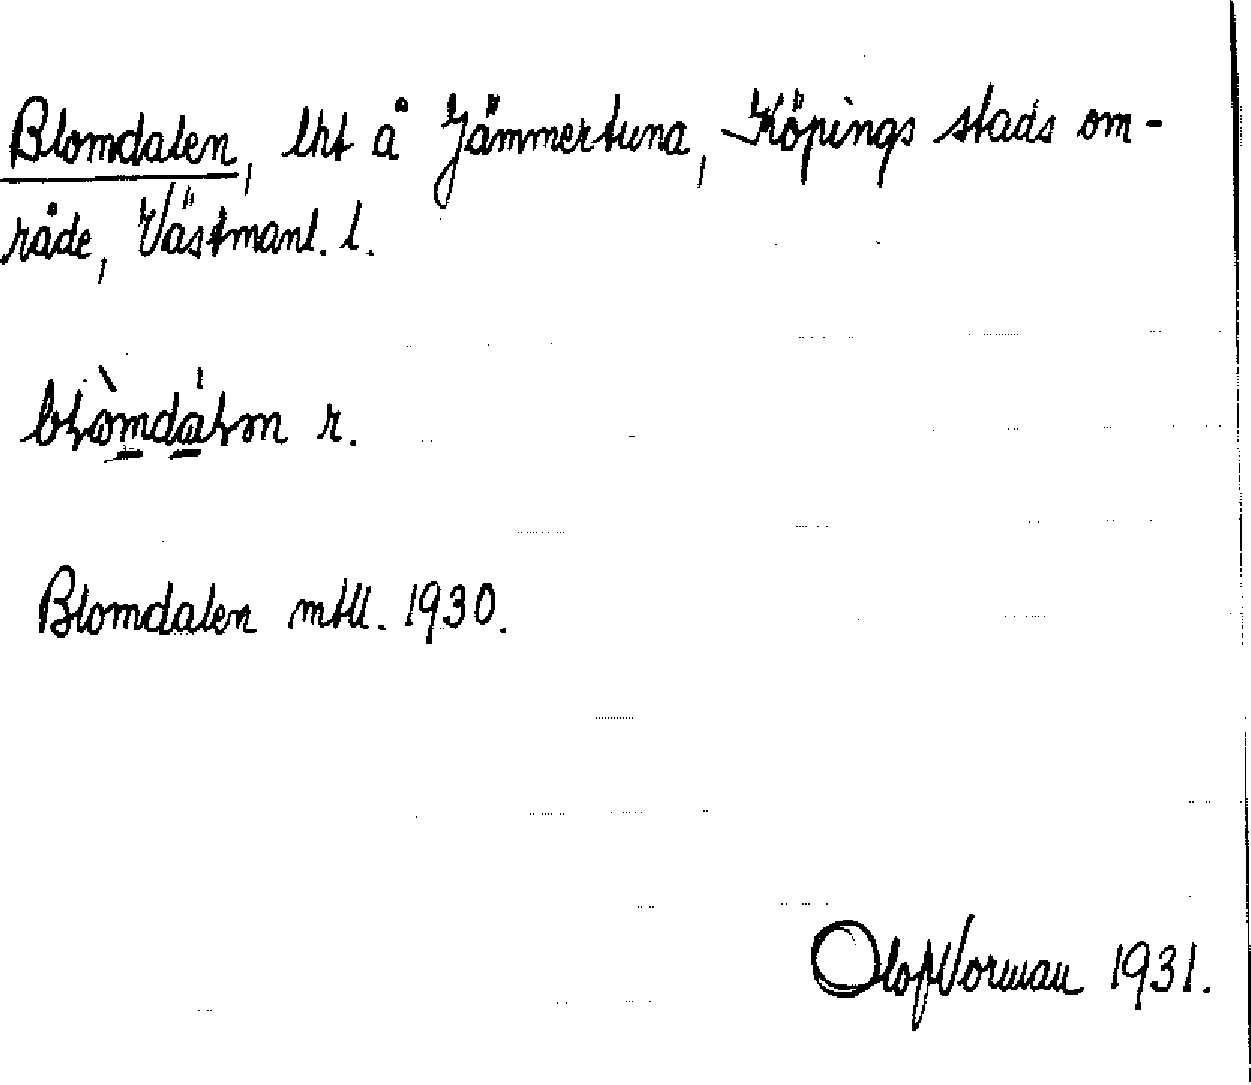 Blomdalen, lht å Jämmertuna, Köpings stads om-
råde, Västmanl. l.
r.
Blomdalen mtll. 1930.
Olof Vorman 1931.